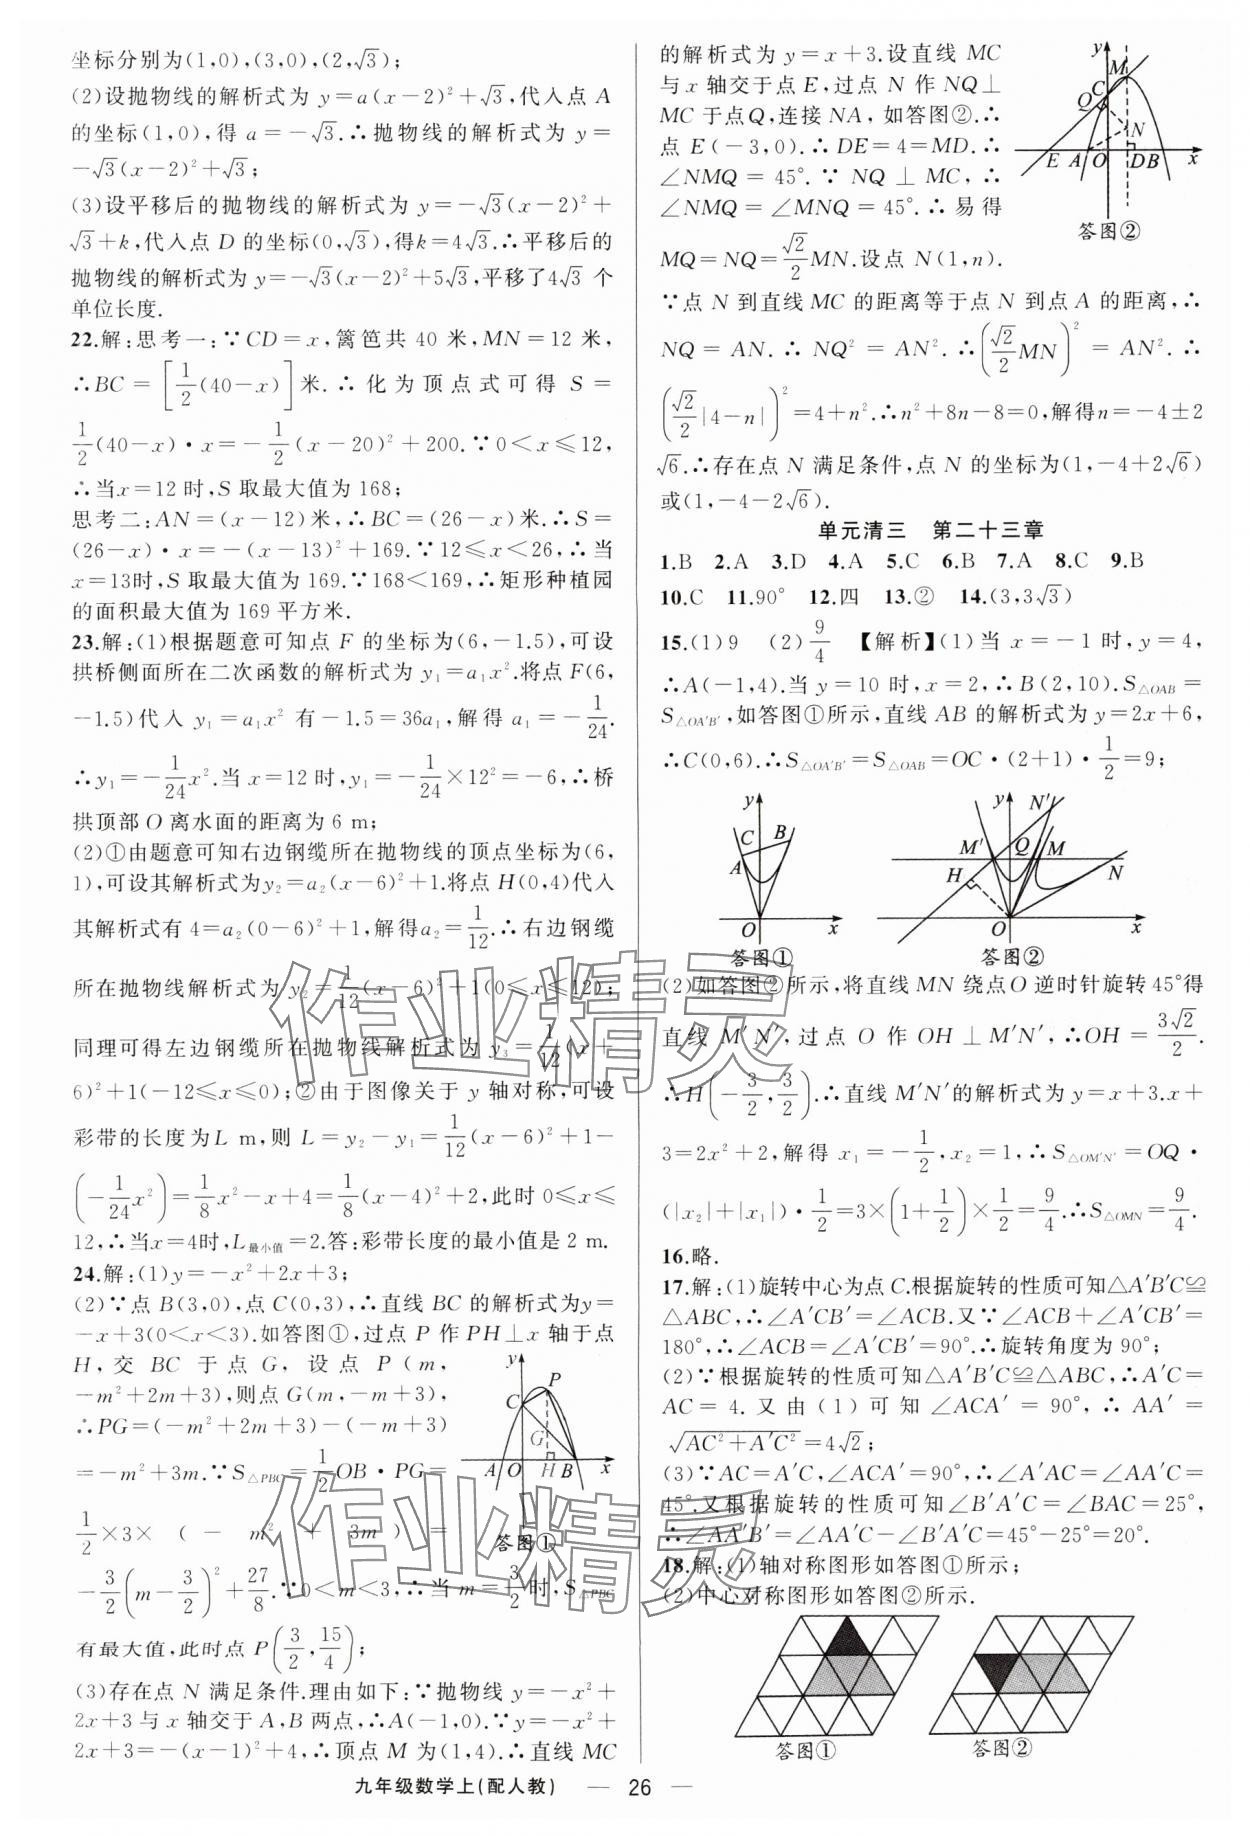 坐标分别为(1,0),(3,0),(2,√3);
(2)设抛物线的解析式为 y=a(x-2)²+√3,代入点 A
的坐标(1,0),得 a=-√3.∴抛物线的解析式为 y=
-√3(x-2)²+√3;
(3)设平移后的抛物线的解析式为 y=-√3(x-2)²+
√3+k,代入点 D 的坐标(0,√3),得k=4√3.∴平移后的
抛物线的解析式为 y=-√3(x-2)²+5√3,平移了4√3 个
单位长度.
22.解:思考一:∵CD=x,篱笆共 40 米,MN=12 米,
∴BC=[1/2(40-x)]米.∴化为顶点式可得 S=
1/2(40-x)·x=-1/2(x-20)²+200.∵0<x≤12,
∴当x=12 时,S 取最大值为 168;
思考二:AN=(x-12)米,∴BC=(26-x)米.∴S=
(26-x)·x=-(x-13)²+169.∵12≤x<26,∴当
x=13时,S 取最大值为 169.∵168<169,∴矩形种植园
的面积最大值为 169 平方米.
23.解:(1)根据题意可知点 F 的坐标为(6,-1.5),可设
拱桥侧面所在二次函数的解析式为 y₁=a₁x².将点 F(6,
-1.5)代入 y₁=a₁x² 有-1.5=36a₁,解得 a₁=-1/24.
∴y₁=-1/24x².当 x=12 时,y₁=-1/24×12²=-6,∴桥
拱顶部 O 离水面的距离为 6 m;
(2)①由题意可知右边钢缆所在抛物线的顶点坐标为(6,
1),可设其解析式为y₂=a₂(x-6)²+1.将点 H(0,4)代入
其解析式有 4=a₂(0-6)²+1,解得a₂=1/12.∴右边钢缆
所在抛物线解析式为 y₂=1/12(x-6)²+1(0≤x≤12);
同理可得左边钢缆所在抛物线解析式为 y₃=1/12(x+
6)²+1(-12≤x≤0);②由于图像关于 y 轴对称,可设
彩带的长度为L m,则 L=y₂-y₁=1/12(x-6)²+1-
(-1/24x²)=1/8x²-x+4=1/8(x-4)²+2,此时 0≤x≤
12,∴当x=4时,L最小值=2.答:彩带长度的最小值是 2 m.
24.解:(1)y=-x²+2x+3;
(2)∵点 B(3,0),点 C(0,3),∴直线 BC 的解析式为y=
-x+3(0<x<3).如答图①,过点 P 作 PH⊥x 轴于点
H,交 BC 于点 G,设点 P(m,
-m²+2m+3),则点 G(m,-m+3),
∴PG=(-m²+2m+3)-(-m+3)
=-m²+3m.∵S△PBC=1/2OB·PG=
1/2×3×(-m²+3m)=
-3/2(m-3/2)²+27/8.∵0<m<3,∴当 m=3/2时,S△PBC
有最大值,此时点 P(3/2,15/4);
(3)存在点 N 满足条件.理由如下:∵抛物线 y=-x²+
2x+3 与 x 轴交于 A,B 两点,∴A(-1,0).∵y=-x²+
2x+3=-(x-1)²+4,∴顶点 M 为(1,4).∴直线 MC
y
C
P
G
A
O
H
B
x
答图①
的解析式为 y=x+3.设直线 MC
与x 轴交于点 E,过点 N 作 NQ⊥
MC 于点Q,连接 NA,如答图②.∴
点 E(-3,0).∴DE=4=MD.∴
∠NMQ=45°.∵NQ⊥MC,∴
∠NMQ=∠MNQ=45°.∴易得
MQ=NQ=√2/2MN.设点 N(1,n).
∵点 N 到直线 MC 的距离等于点 N 到点 A 的距离,∴
NQ=AN.∴NQ²=AN².∴(√2/2MN)²=AN².∴
(√2/2|4-n|)²=4+n².∴n²+8n-8=0,解得n=-4±2
√6.∴存在点 N 满足条件,点 N 的坐标为(1,-4+2√6)
或(1,-4-2√6).
y
M
C
Q
N
E
A
O
D
B
x
答图②
单元清三 第二十三章
1.B 2.A 3.D 4.A 5.C 6.B 7.A 8.C 9.B
10.C 11.90° 12.四 13.② 14.(3,3√3)
15.(1)9 (2)9/4 【解析】(1)当 x=-1 时,y=4,
∴A(-1,4).当 y=10 时,x=2,∴B(2,10).S△OAB=
S△OA′B′,如答图①所示,直线 AB 的解析式为 y=2x+6,
∴C(0,6).∴S△OA′B′=S△OAB=OC·(2+1)·1/2=9;
y
C
B
A
O
x
答图①
y
N′
M′
Q
M
H
N
O
x
答图②
(2)如答图②所示,将直线 MN 绕点O 逆时针旋转 45°得
直线 M′N′,过点 O 作 OH⊥M′N′,∴OH=3√2/2.
∴H(-3/2,3/2).∴直线 M′N′的解析式为 y=x+3.x+
3=2x²+2,解得 x₁=-1/2,x₂=1,∴S△OM′N′=OQ·
(|x₂|+|x₁|)·1/2=3×(1+1/2)×1/2=9/4.∴S△OMN=9/4.
16.略.
17.解:(1)旋转中心为点 C.根据旋转的性质可知△A′B′C≌
△ABC,∴∠A′CB′=∠ACB.又∵∠ACB+∠A′CB′=
180°,∴∠ACB=∠A′CB′=90°.∴旋转角度为 90°;
(2)∵根据旋转的性质可知△A′B′C≌△ABC,∴A′C=
AC=4.又由(1)可知∠ACA′=90°,∴AA′=
√(AC²+A′C²)=4√2;
(3)∵AC=A′C,∠ACA′=90°,∴∠A′AC=∠AA′C=
45°.又根据旋转的性质可知∠B′A′C=∠BAC=25°,
∴∠AA′B′=∠AA′C-∠B′A′C=45°-25°=20°.
18.解:(1)轴对称图形如答图①所示;
(2)中心对称图形如答图②所示.
答图①
答图②
九年级数学上(配人教) — 26 —
作业精灵
作业精灵